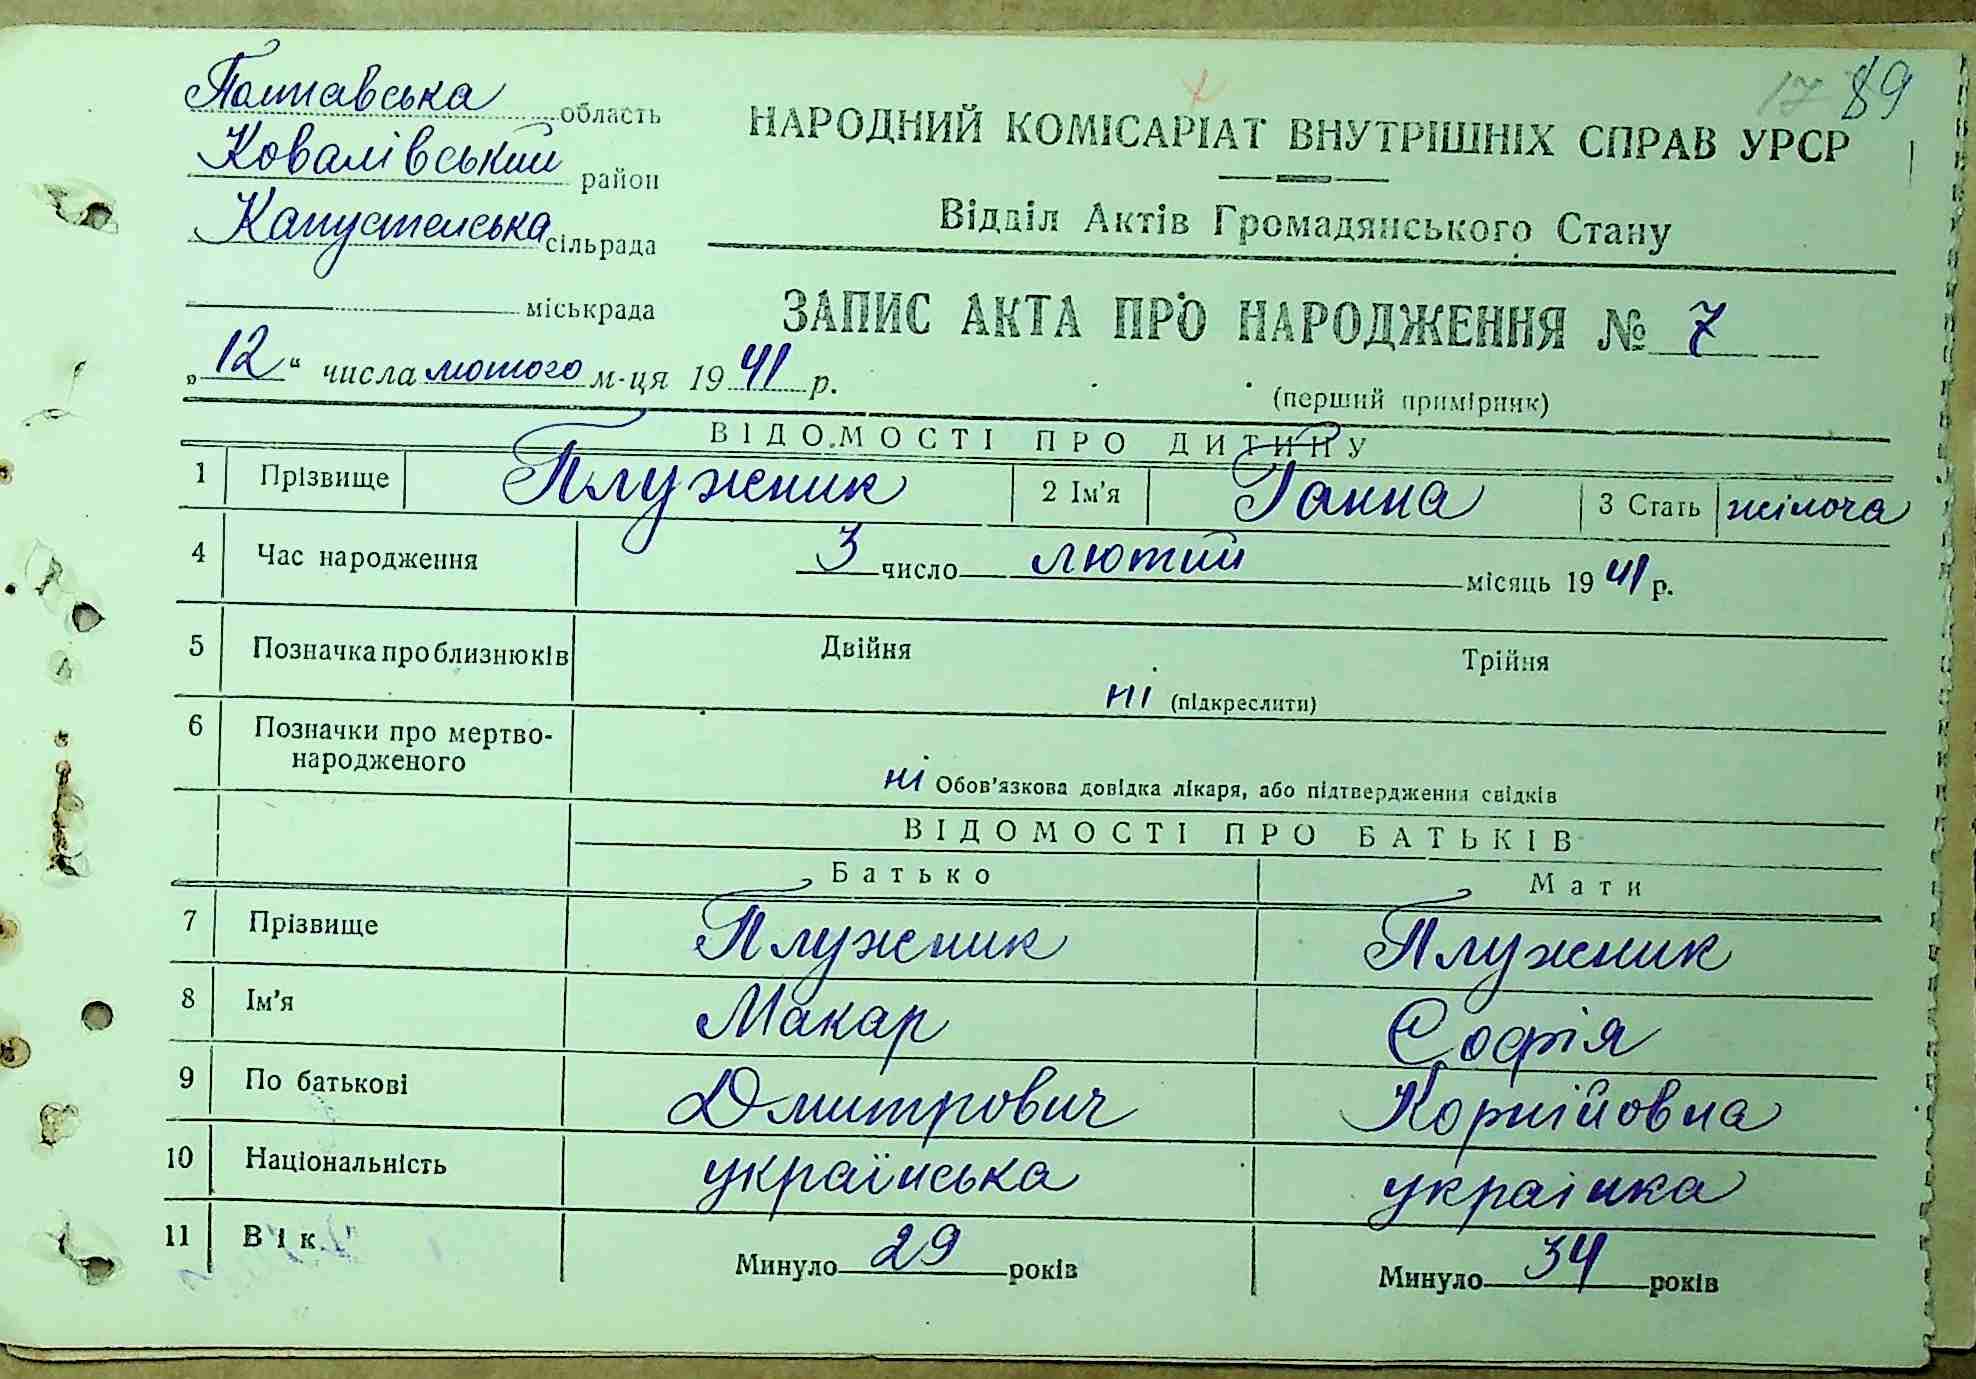 89
Полтавська область
Ковалівський район
Капустенська сільрада
міськрада
НАРОДНИЙ КОМІСАРІАТ ВНУТРІШНІХ СПРАВ УРСР
Відділ Актів Громадянського Стану
ЗАПИС АКТА ПРО НАРОДЖЕННЯ № 7
„12“ числа лютого м-ця 1941 р.
(перший примірник)
ВІДОМОСТІ ПРО ДИТИНУ
1 Прізвище Плужник 2 Ім'я Ганна 3 Стать жіноча
4 Час народження 3 число лютий місяць 1941 р.
5 Позначка про близнюків Двійня Трійня
ні (підкреслити)
6 Позначки про мертво-
народженого
ні Обов'язкова довідка лікаря, або підтвердження свідків
ВІДОМОСТІ ПРО БАТЬКІВ
Батько Мати
7 Прізвище Плужник Плужник
8 Ім'я Макар Софія
9 По батькові Дмитрович Корнійовна
10 Національність українська українка
11 Вік Минуло 29 років Минуло 34 років